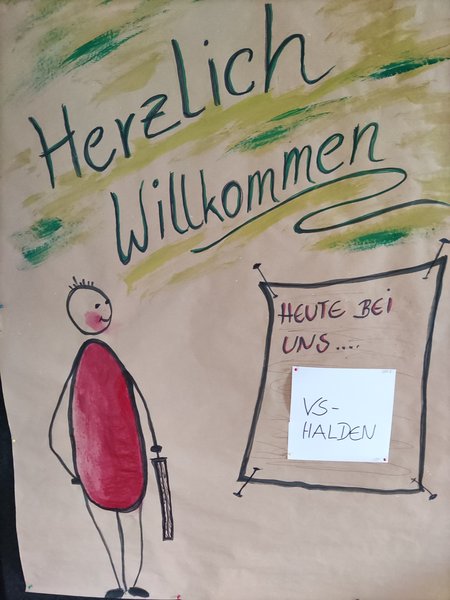 Herzlich
Willkommen
HEUTE BEI
UNS....
VS-
HALDEN